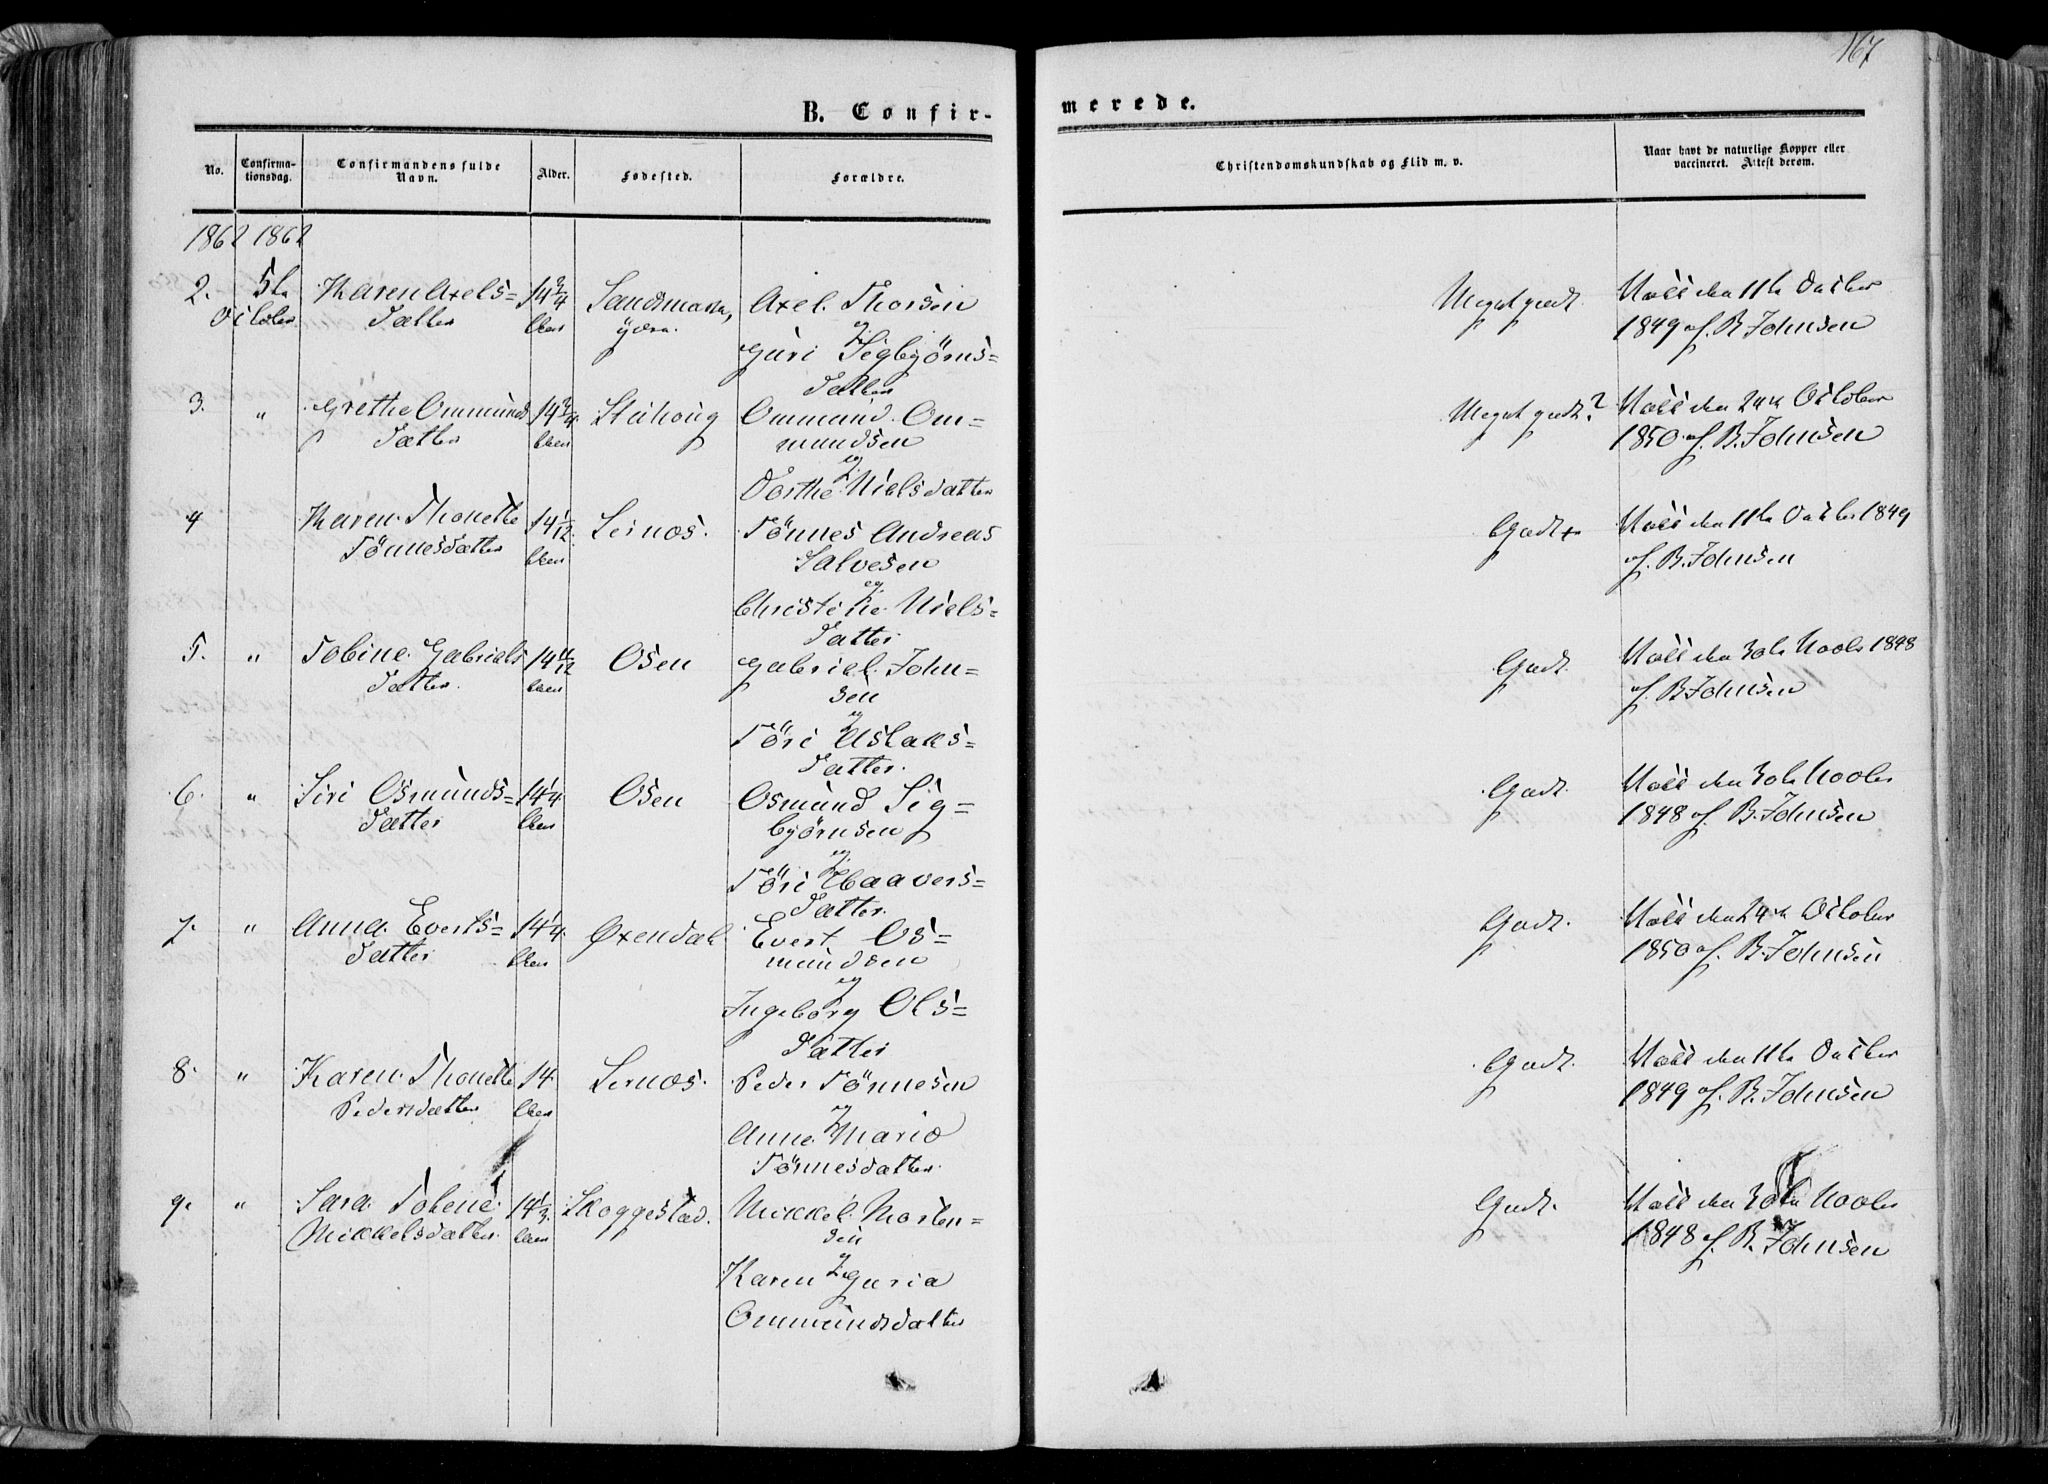 167
B. Confirmerede.
No.
Confirmationsdag.
Confirmandens fulde Navn.
Alder.
Fødested.
Forældre.
Christendomskundskab og Flid m. v.
Naar havt de naturlige Kopper eller vaccineret. Attest derom.
1862 1862
2. 5te October
Karen Axels=
datter
14 3/4
Aar
Axel Thorsen
og
Guri Sigbjørns=
datter
Meget godt.
Vacc den 11te October
1849 af B. Johnsen
3. "
Grethe Ommunds
datter
14 3/4
Aar
Stuhoug
Ommund Om=
mundsen
og
Dorthe Nielsdatter
Meget godt?
Vacc den 24de October
1850 af B. Johnsen
4
Karen Thonette
Tönnesdatter
14 1/12
Aar
Lernæs.
Tönnes Andreas
Salvesen
og
Christine Niels=
datter
Godt+
Vacc den 11te October 1849
af B. Johnsen
5. "
Tobine Gabriels
datter
14 11/12
Aar
Osen
Gabriel John=
sen
og
Töri Aslaks=
datter.
Godt.
Vacc den 30te Novbr 1848
af B Johnsen
6. "
Siri Osmunds=
datter
14 1/4
Aar
Osen
Osmund Sig=
bjørnsen
og
Töri Haavers=
datter.
Godt.
Vacc den 30te Novbr
1848 af B. Johnsen
7. "
Anna Everts=
datter
14 1/4
Aar
Øxendal
Evert Os=
mundsen
og
Ingeborg Ols=
datter
Godt.
Vacc den 24de October
1850 af B. Johnsen
8. "
Karen Thonette
Pedersdatter
14
Aar
Lernæs.
Peder Tönnesen
og
Anne Marie
Tönnesdatter.
Godt.
Vacc den 11te October
1849 af B. Johnsen
9. "
Sara Tolene
Mikkelsdatter.
14 1/3
Aar
Skoggestad.
Mikkel Morten=
sen
og
Karen Guria
Ommundsdatter
Godt.
Vacc den 30te Novbr
1848 af B. Johnsen